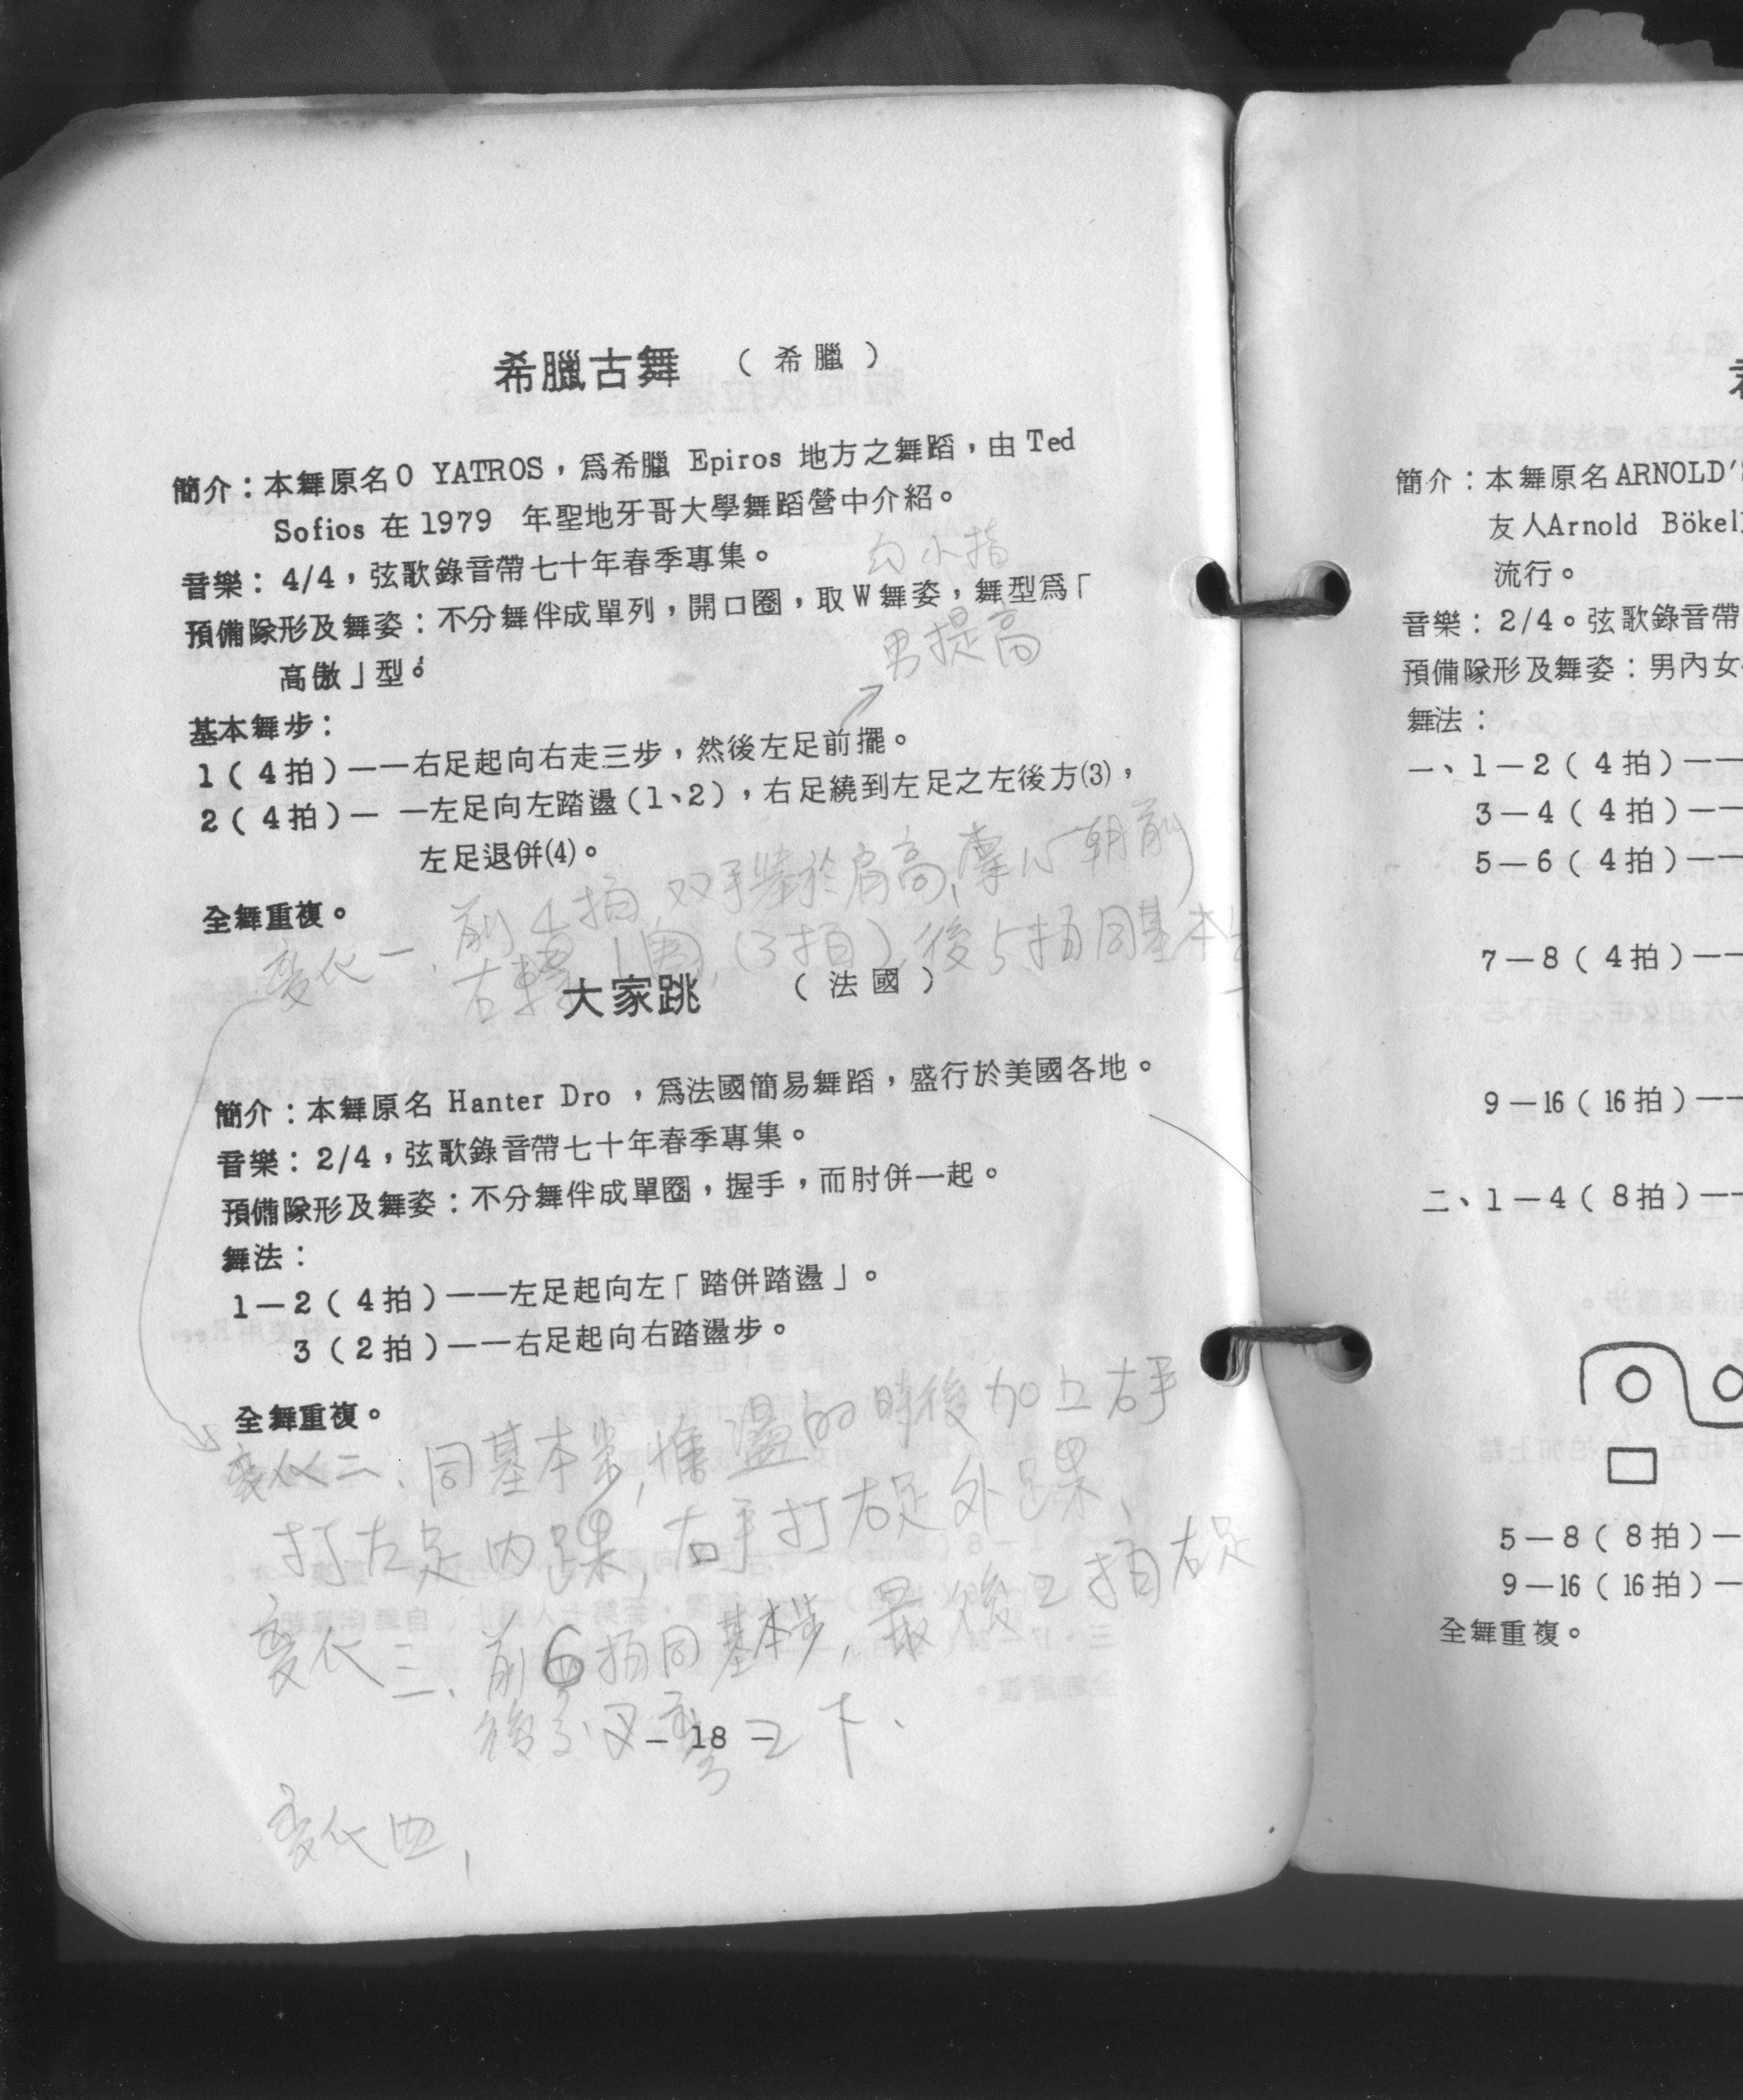 希臘古舞 （希臘）
簡介：本舞原名O YATROS，爲希臘 Epiros 地方之舞蹈，由 Ted
Sofios 在 1979 年聖地牙哥大學舞蹈營中介紹。
勾小指
音樂：4/4，弦歌錄音帶七十年春季專集。
預備隊形及舞姿：不分舞伴成單列，開口圈，取W舞姿，舞型爲「
高傲」型。
男提高
基本舞步：
1（4拍）——右足起向右走三步，然後左足前擺。
2（4拍）——左足向左踏盪(1、2)，右足繞到左足之左後方(3)，
左足退併(4)。
全舞重複。
變化一、前4拍 双手舉於肩高，掌心朝前
右轉1圈，(3拍)，後5拍同基本
大家跳 （法國）
簡介：本舞原名 Hanter Dro ，爲法國簡易舞蹈，盛行於美國各地。
音樂：2/4，弦歌錄音帶七十年春季專集。
預備隊形及舞姿：不分舞伴成單圈，握手，而肘併一起。
舞法：
1—2（4拍）——左足起向左「踏併踏盪」。
3（2拍）——右足起向右踏盪步。
全舞重複。
變化二、同基本步，盪的時後加上右手
打左足內踝，右手打右足外踝、
變化三、前6拍同基本步，最後2拍右足
後 2下、
— 18 —
變化四，
簡介：本舞原名ARNOLD'S
友人Arnold Bökel
流行。
音樂：2/4。弦歌錄音帶
預備隊形及舞姿：男內女
舞法：
一、1—2（4拍）——
3—4（4拍）——
5—6（4拍）——
7—8（4拍）——
9—16（16拍）——
二、1—4（8拍）——
5—8（8拍）—
9—16（16拍）—
全舞重複。